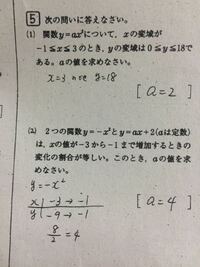 5 次の問いに答えなさい。
(1) 関数y=ax²について，xの変域が
-1≦x≦3のとき，yの変域は0≦y≦18で
ある。aの値を求めなさい。
x=3 のとき y=18
[ a=2 ]
(2) 2つの関数y=-x²とy=ax+2(aは定数)
は，xの値が-3から-1まで増加するときの
変化の割合が等しい。このとき，aの値を求
めなさい。
y=-x²
[ a=4 ]
x | -3 → -1
y | -9 → -1
8/2 = 4